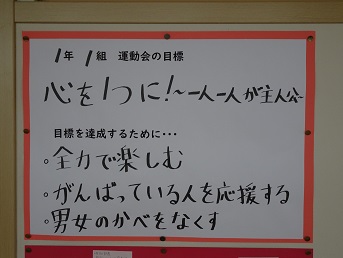 1年 1組 運動会の目標
心を1つに!～一人一人が主人公～
目標を達成するために・・・
・全力で楽しむ
・がんばっている人を応援する
・男女のかべをなくす